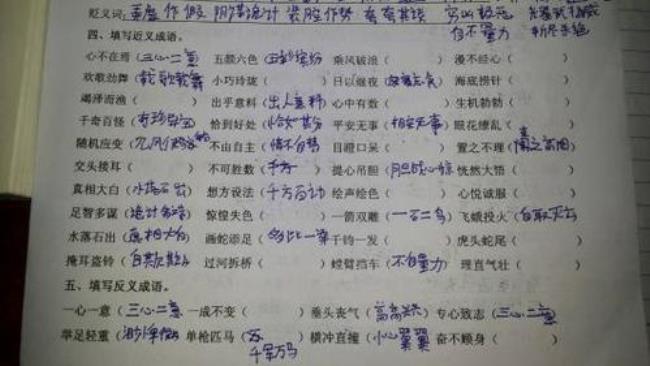 贬义词: 弄虚作假 阴谋诡计 装腔作势 夸夸其谈
自不量力
四、填写近义成语。
心不在焉（三心二意） 五颜六色（五彩缤纷） 乘风破浪（ ） 漫不经心（ ）
欢歌劲舞（载歌载舞） 小巧玲珑（ ） 日以继夜（ ） 海底捞针（ ）
竭泽而渔（ ） 出乎意料（出人意料） 心中有数（ ） 生机勃勃（ ）
千奇百怪（ ） 恰到好处（恰如其分） 平安无事（相安无事） 眼花缭乱（ ）
随机应变（ ） 不由自主（情不自禁） 目瞪口呆（ ） 置之不理（置之 ）
交头接耳（ ） 不可胜数（ ） 提心吊胆（胆战心惊） 恍然大悟（ ）
真相大白（水落石出） 想方设法（千方百计） 绘声绘色（ ） 心悦诚服（ ）
足智多谋（诡计多端） 惊惶失色（ ） 一箭双雕（一石二鸟） 飞蛾投火（自取灭亡）
水落石出（真相大白） 画蛇添足（多此一举） 千钧一发（ ） 虎头蛇尾（ ）
掩耳盗铃（自欺欺人） 过河拆桥（ ） 螳臂挡车（不自量力） 理直气壮（ ）
五、填写反义成语。
一心一意（三心二意） 一成不变（ ） 垂头丧气（ ） 专心致志（三心二意）
举足轻重（ ） 单枪匹马（ ） 横冲直撞（小心翼翼） 奋不顾身（ ）
千军万马